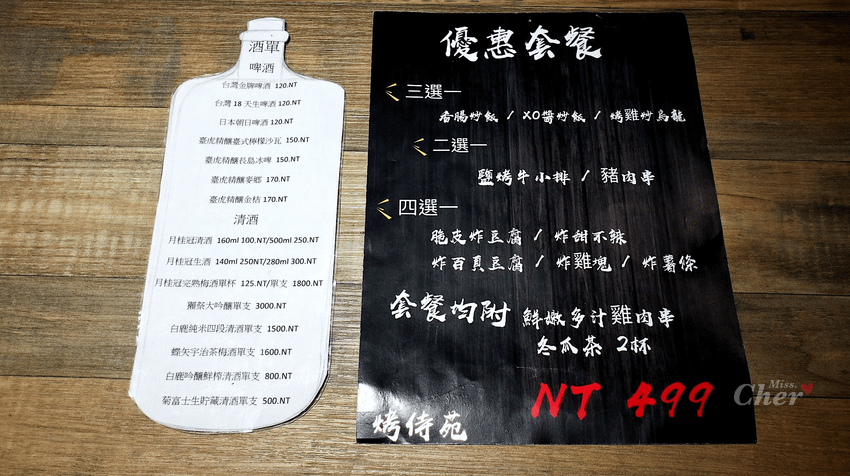 酒單
啤酒
台灣金牌啤酒 120.NT
台灣 18 天生啤酒 120.NT
日本朝日啤酒 120.NT
臺虎精釀臺式檸檬沙瓦 150.NT
臺虎精釀長島冰啤 150.NT
臺虎精釀麥鄉 170.NT
臺虎精釀金桔 170.NT
清酒
月桂冠清酒 160ml 100.NT/500ml 250.NT
月桂冠生酒 140ml 250NT/280ml 300.NT
月桂冠完熟梅酒單杯 125.NT/單支 1800.NT
獺祭大吟釀單支 3000.NT
白鹿純米四段清酒單支 1500.NT
蝶矢宇治茶梅酒單支 1600.NT
白鹿吟釀鮮榨清酒單支 800.NT
菊富士生貯藏清酒單支 500.NT
優惠套餐
三選一
香腸炒飯 / XO醬炒飯 / 烤雞炒烏龍
二選一
鹽烤牛小排 / 豬肉串
四選一
脆皮炸豆腐 / 炸甜不辣
炸百頁豆腐 / 炸雞塊 / 炸薯條
套餐均附 鮮嫩多汁雞肉串
冬瓜茶 2杯
NT 499
烤侍苑
Miss.
Cher